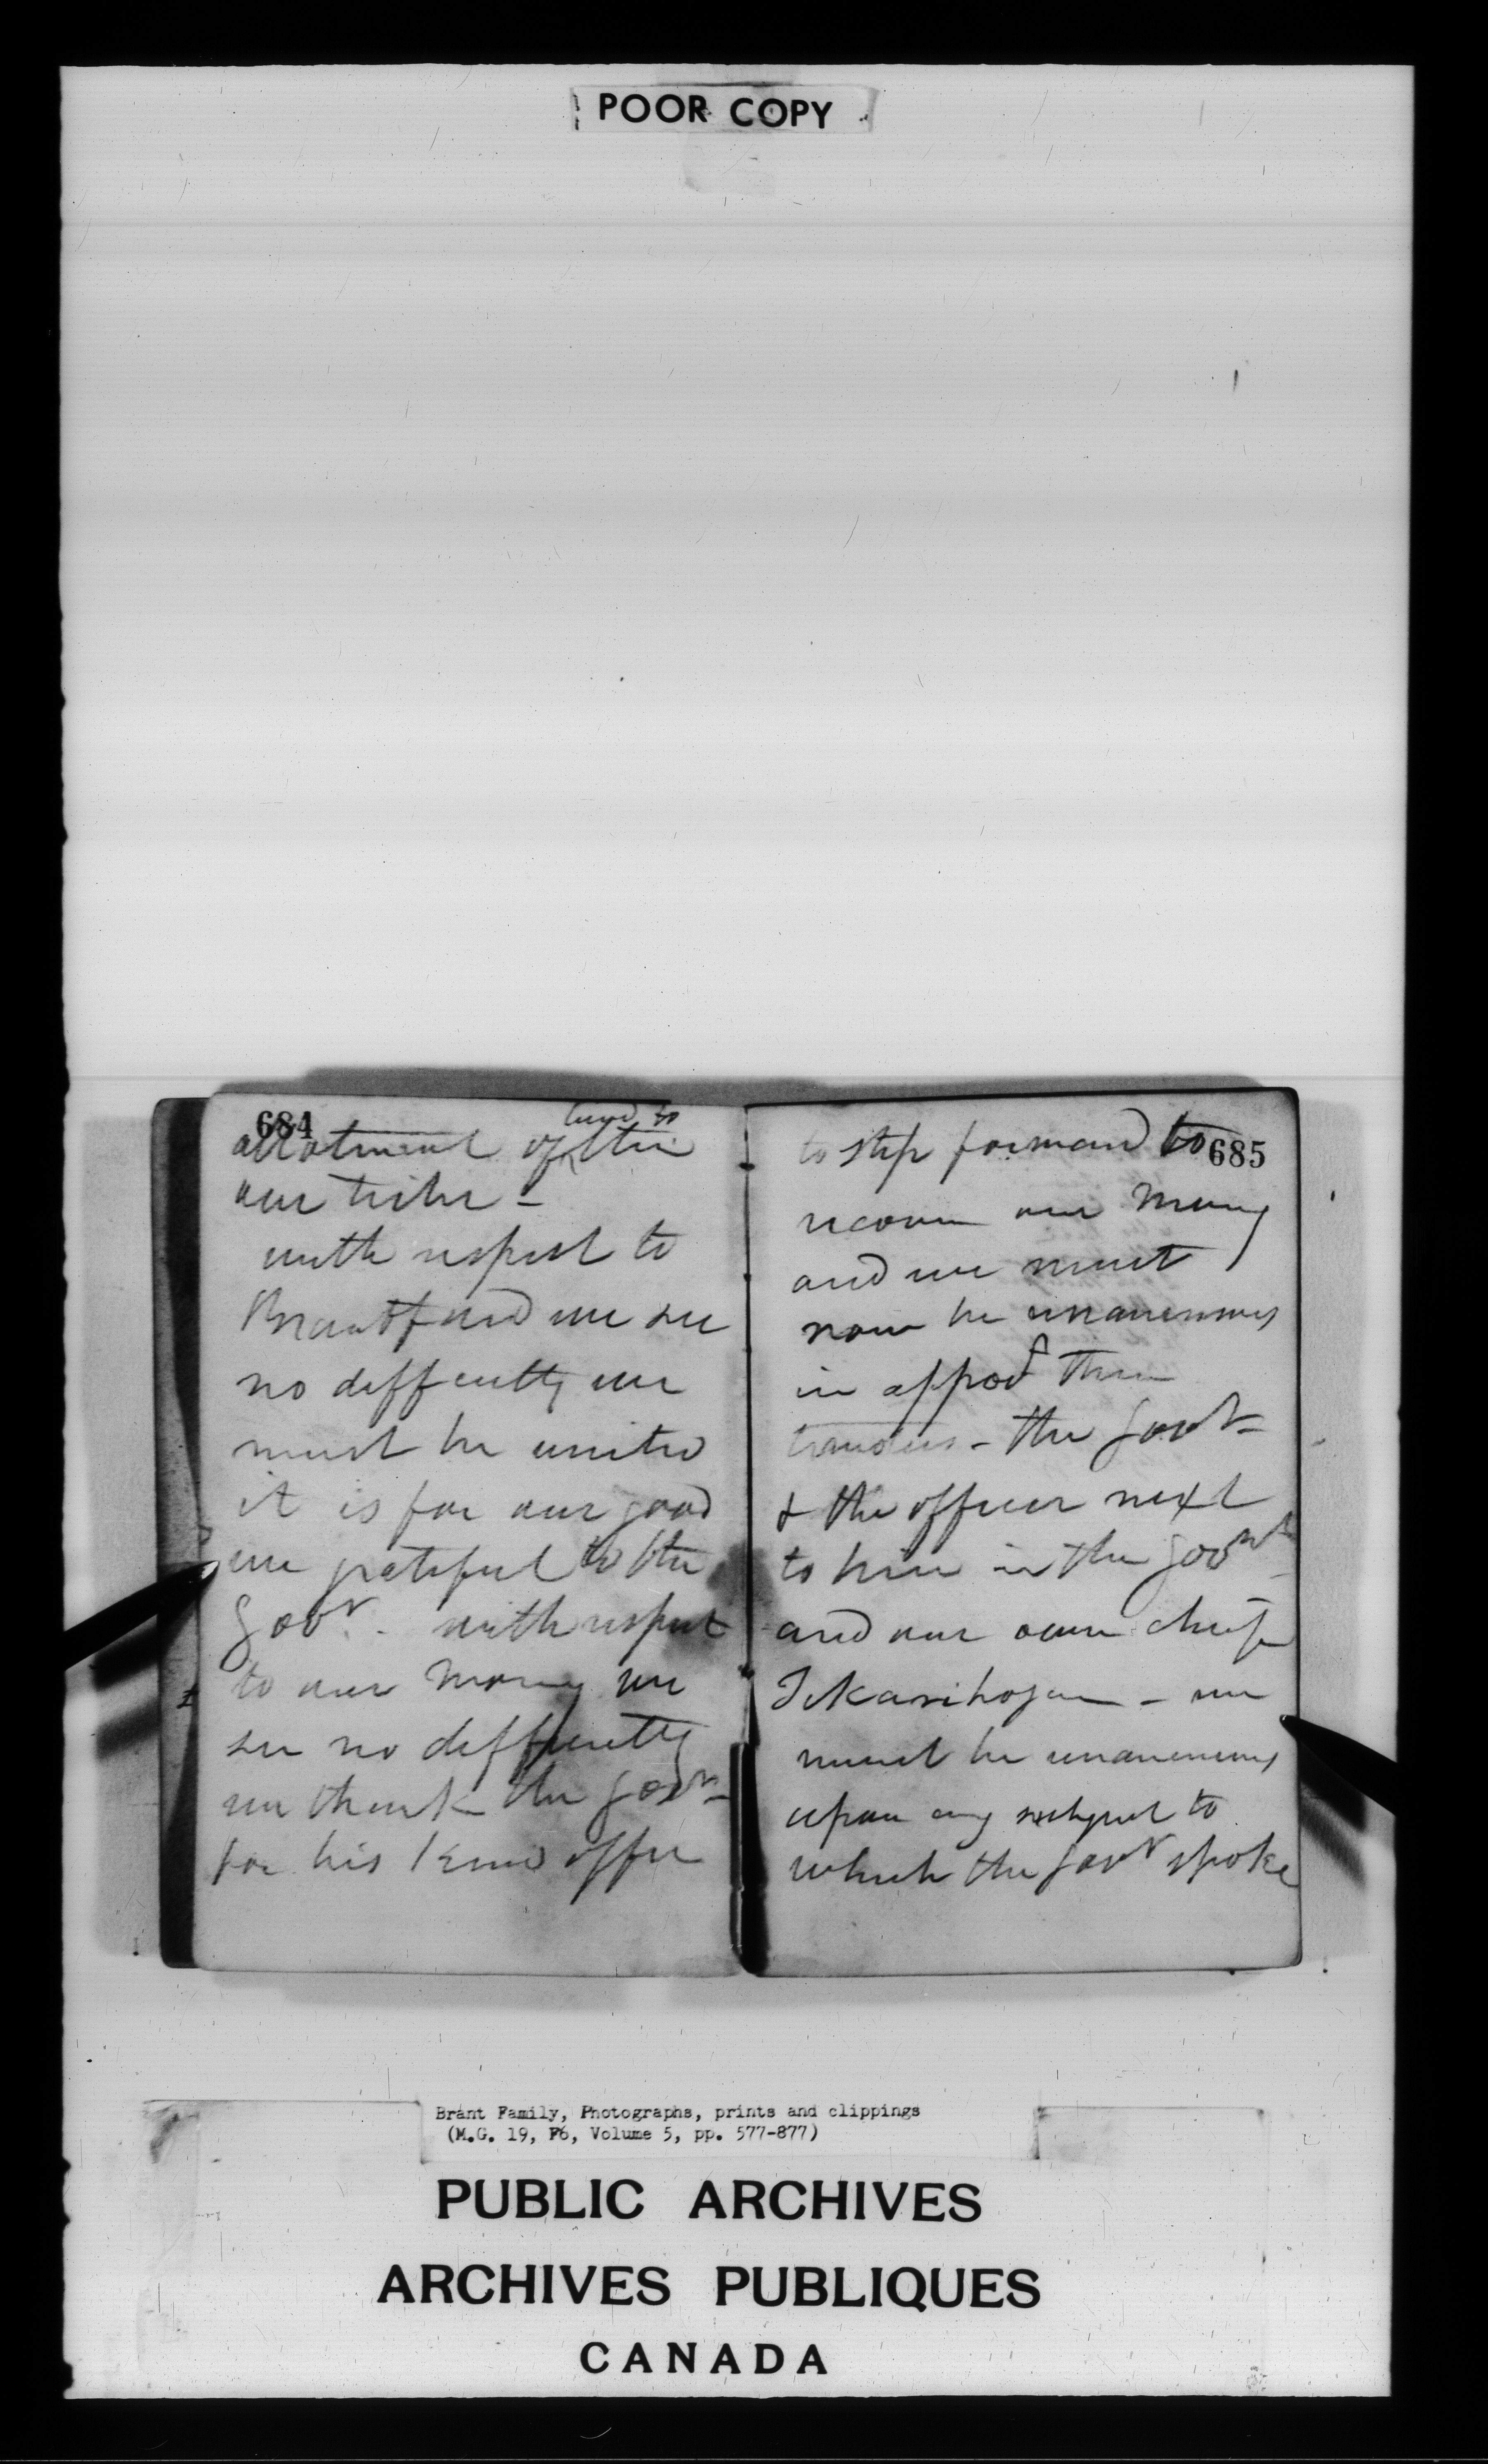 POOR COPY
684
land to
allotment of the
our tribe -
with respect to
Brantford we see
no difficulty we
must be united
it is for our good
we grateful to the
Govr. - with respect
to our money we
see no difficulty
we thank the Govr -
for his kind offer
685
to step forward to
recover our money
and we must
now be unanimous
in
the Govr -
& the officer next
to him in the Govnt
and our own chief
Tekarihogen - we
must be unanimous
upon any subject to
which the Govr spoke
Brant Family, Photographs, prints and clippings
(M.G. 19, F6, Volume 5, pp. 577-877)
PUBLIC ARCHIVES
ARCHIVES PUBLIQUES
CANADA